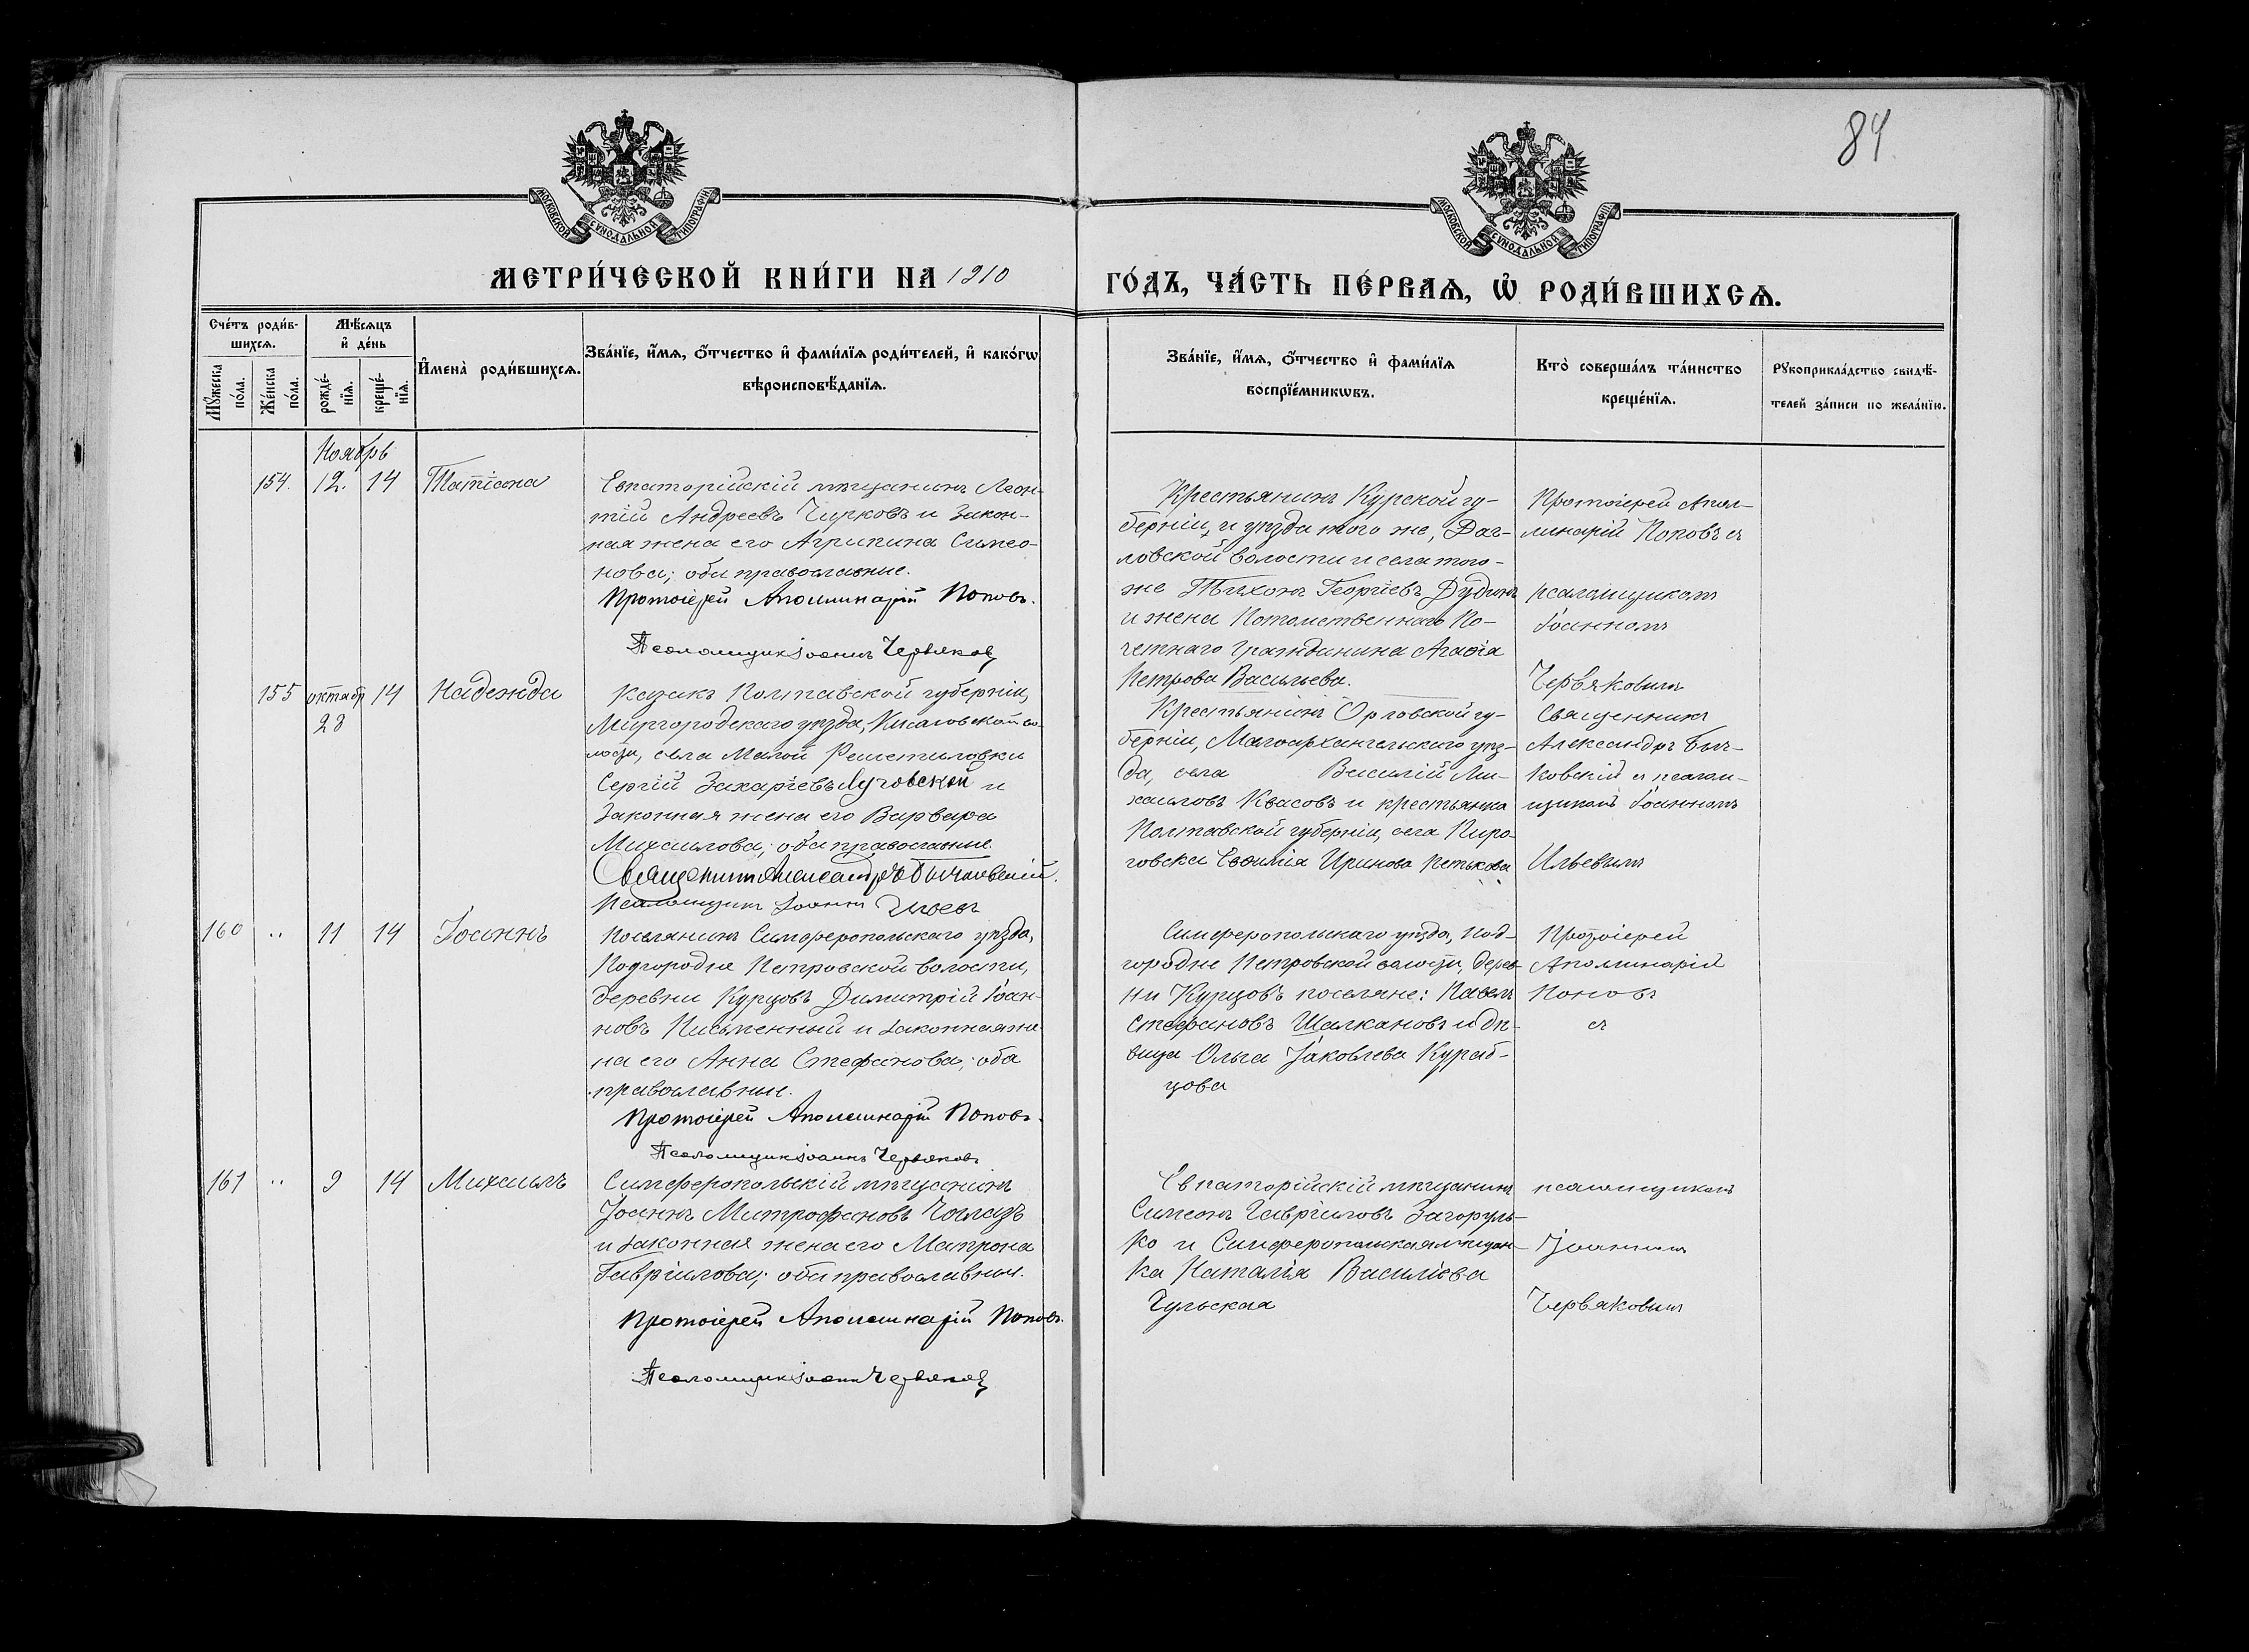 84
МОСКОВСКОЙ СѴНОДАЛЬНОЙ ТИПОГРАФІИ
МОСКОВСКОЙ СѴНОДАЛЬНОЙ ТИПОГРАФІИ
МЕТРИ́ЧЕСКОЙ КНИ́ГИ НА 1910 ГО́ДЪ, ЧА́СТЬ ПЕ́РВАѦ, Ѡ҆ РОДИ́ВШИХСѦ.
Сче́тъ роди́в-
шихсѧ.
Мꙋ́жеска по́ла.
Же́нска по́ла.
Мѣ́сѧцъ
и҆ де́нь
рожде́-нїѧ.
креще́-нїѧ.
И҆мена̀ роди́вшихсѧ.
Зва́нїе, и҆́мѧ, ѻ҆́тчество и҆ фами́лїѧ роди́телей, и҆ како́гѡ
вѣроисповѣ́данїѧ.
Зва́нїе, и҆́мѧ, ѻ҆́тчество и҆ фами́лїѧ
воспрїе́мникѡвъ.
Кто̀ соверша́лъ та́инство
креще́нїѧ.
Рꙋкоприкла́дство свидѣ́-
телей за́писи по жела́нїю.
Ноябрь
154. 12. 14 Татіана
Евпаторійскій мѣщанинъ Леон-
тій Андреевъ Чирковъ и закон-
ная жена его Агрипина Симео-
нова; оба православные.
Протоіерей Аполлинарій Поповъ.
Псаломщикъ Іоаннъ Червяковъ
Крестьянинъ Курской гу-
берніи, и уѣзда того же,
ловской волости и села того-
же Тихонъ Георгіевъ Дудинъ
и жена Потомственнаго По-
четнаго Гражданина Агаѳія
Петрова Васильева.
Протоіерей Апол-
линарій Поповъ съ
псаломщикомъ
Іоанномъ
Червяковымъ
155 октябр 28 14 Надежда
Казакъ Полтавской губерніи,
Миргородскаго уѣзда, во-
лости, села Малой Решетиловки
Сергій Захаріевъ Луговской и
законная жена его Варвара
Михаилова; оба православные.
Священникъ Александръ Бычковскій.
Псаломщикъ Іоаннъ Ильевъ
Крестьянинъ Орловской гу-
берніи, Малоархангельскаго уѣз-
да, села Василій Ми-
хаиловъ Квасовъ и крестьянка
Полтавской губерніи, села Пиро-
говска Евѳимія
Священникъ
Александръ Быч-
ковскій съ псалом-
щикомъ Іоанномъ
Ильевымъ
160 .. 11 14 Іоаннъ
Поселянинъ Симферопольскаго уѣзда,
Подгородне Петровской волости,
деревни Курцовъ Димитрій Іоан-
новъ Письменный и законная же-
на его Анна Стефанова; оба
православные.
Протоіерей Аполлинарій Поповъ.
Псаломщикъ Іоаннъ Червяковъ
Симферопольскаго уѣзда, Под-
городне Петровской волости, дерев-
ни Курцовъ поселяне: Павелъ
Стефановъ Шалкановъ и дѣ-
вица Ольга Іаковлева Кураб-
цова
Протоіерей
Аполлинарій
Поповъ
съ
161 .. 9 14 Михаилъ
Симферопольскій мѣщанинъ
Іоаннъ Митрофановъ
и законная жена его Матрона
Гавріилова; оба православные.
Протоіерей Аполлинарій Поповъ.
Псаломщикъ Іоаннъ Червяковъ
Евпаторійскій мѣщанинъ
Симеонъ Гавріиловъ Загоруль-
ко и Симферопольская мѣщан-
ка Наталія Василіева
Чульская
псаломщикомъ
Іоанномъ
Червяковымъ